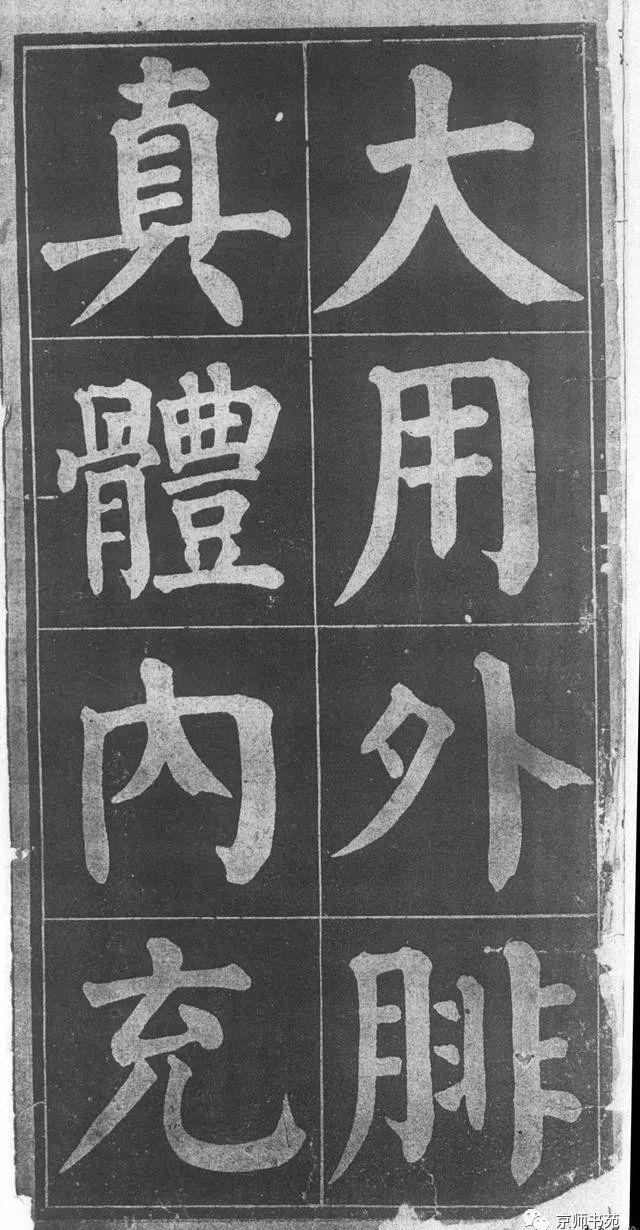 大用外腓
真體內充
京师书苑